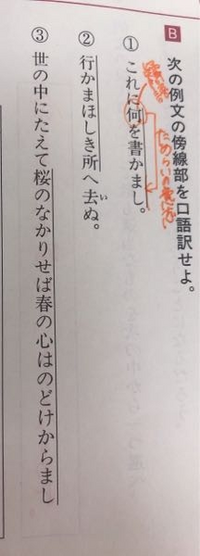 B 次の例文の傍線部を口語訳せよ。
ためらいの意志
① これに何を書かまし。
② 行かまほしき所へ去ぬ。
い
③ 世の中にたえて桜のなかりせば春の心はのどけからまし